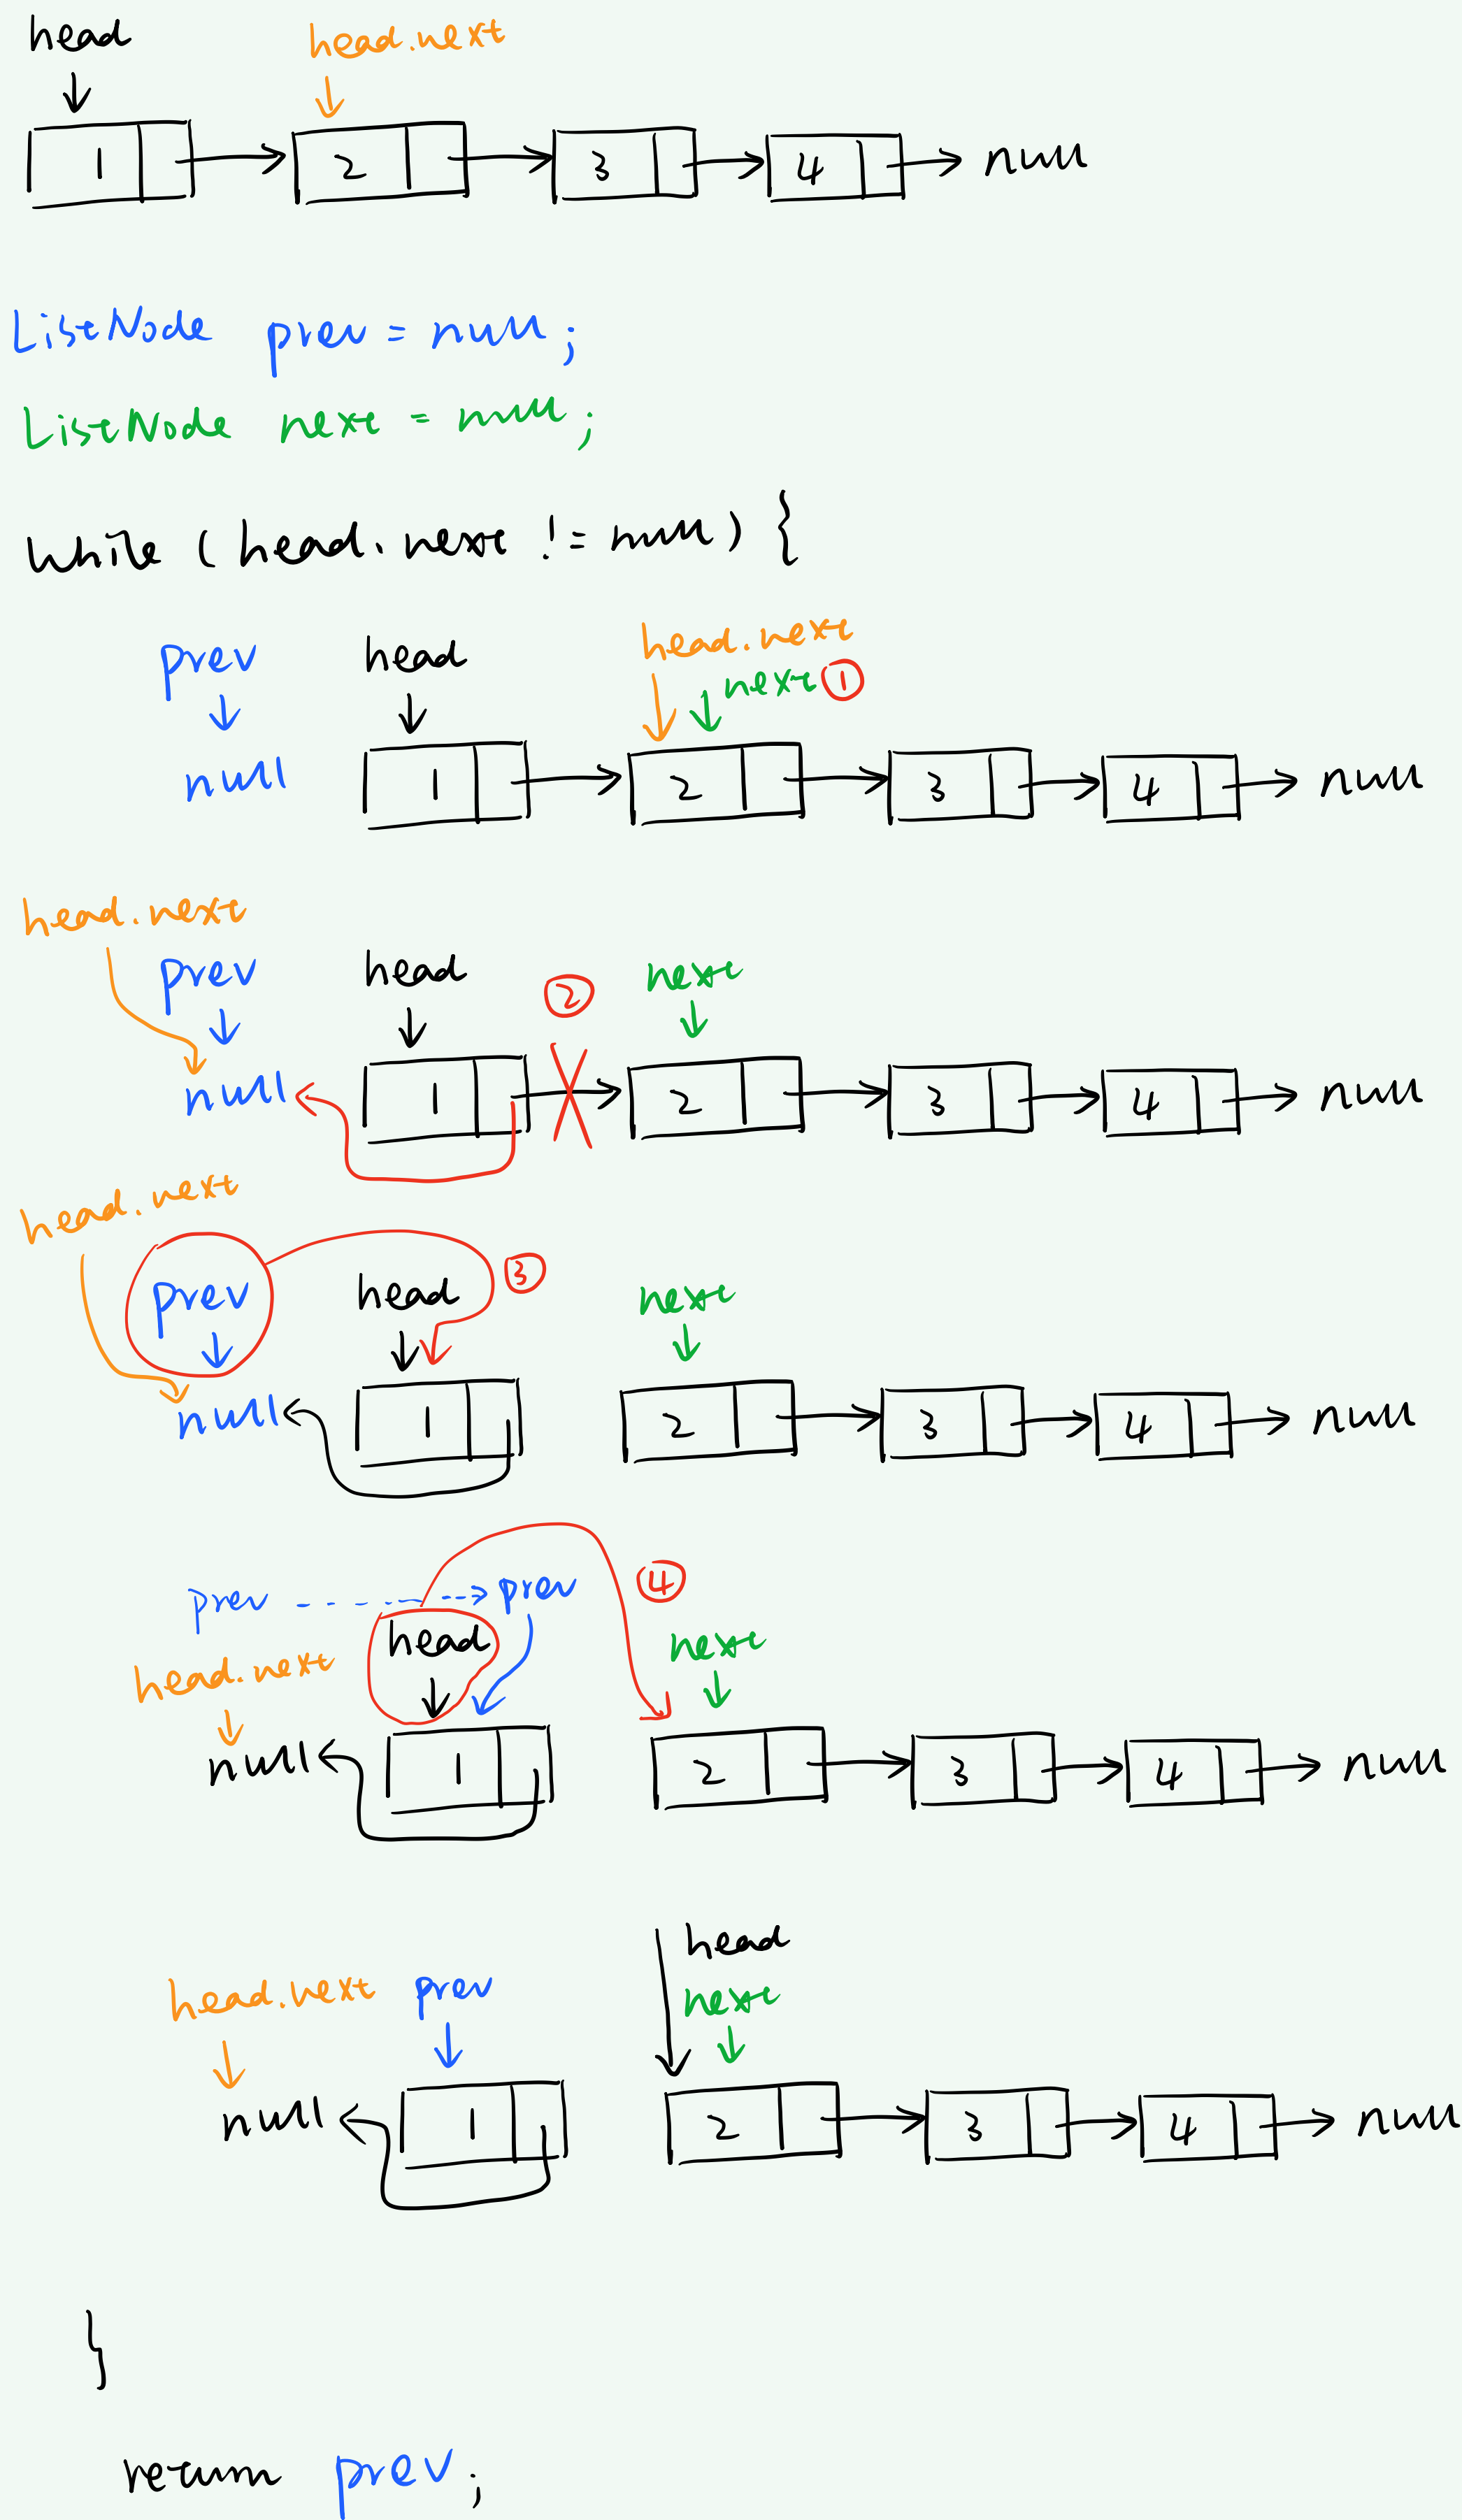 head head.next
1 2 3 4 null
ListNode prev = null;
ListNode next = null;
while (head.next != null) {
prev head head.next
next ①
null 1 2 3 4 null
head.next
prev head ② next
null 1 2 3 4 null
head.next
prev head ③ next
null 1 2 3 4 null
prev prev ④
head next
head.next
null 1 2 3 4 null
head
head.next prev next
null 1 2 3 4 null
}
return prev;